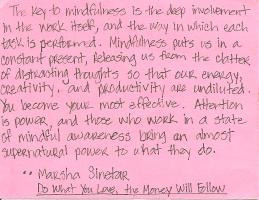 The key to mindfulness is the deep involvement
in the work itself, and the way in which each
task is performed. Mindfulness puts us in a
constant present, releasing us from the clatter
of distracting thoughts so that our energy,
creativity, and productivity are undiluted.
You become your most effective. Attention
is power, and those who work in a state
of mindful awareness bring an almost
supernatural power to what they do.
·· Marsha Sinetar
Do What You Love, the Money Will Follow